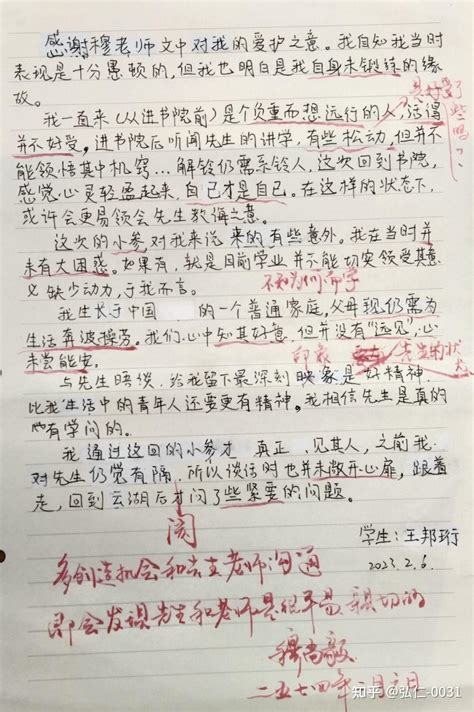 感谢穆老师文中对我的爱护之意。我自知我当时
表现是十分愚顿的,但我也明白是我自身未锻练的缘
故。
我一直来(从进书院前)是个负重而想远行的人,活得
并不好受。进书院后听闻先生的讲学,有些松动,但并不
能领悟其中机窍…解铃仍需系铃人,这次回到书院,
感觉心灵轻盈起来,自己才是自己。在这样的状态下,
或许会更易领会先生教诲之意。
这次的小参对我来说来的有些意外。我在当时并
未有大困惑。如果有,就是目前学业并不能切实领受其意
不知为何而学
义缺少动力,于我而言。
我生长于中国 的一个普通家庭,父母现仍需为
生活奔波操劳。我们心中知其好意,但并没有“远见”,心
未尝能安。
印象
与先生晤谈,给我留下最深刻映象是好精神,
比我生活中的青年人还要更有精神。我相信先生是真的
有学问的。
我通过这回的小参才 真正 见其人,之前我
对先生仍觉有隔,所以谈话时也并未敞开心扉,跟着
走,回到云湖后才问了些紧要的问题。
学生:王邦珩
2023.2.6.
阅
多创造机会和 老师沟通
即会发现先生和老师是很平易、亲切的
穆尚毅
二五七四年二月六日
知乎 @弘仁-0031